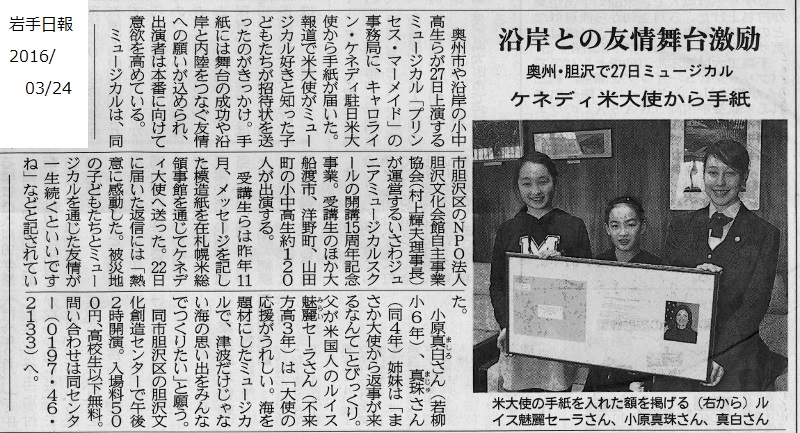 岩手日報
2016/
03/24
沿岸との友情舞台激励
奥州・胆沢で27日ミュージカル
ケネディ米大使から手紙
奥州市や沿岸の小中
高生らが27日上演する
ミュージカル「プリン
セス・マーメイド」の
事務局に、キャロライ
ン・ケネディ駐日米大
使から手紙が届いた。
報道で米大使がミュー
ジカル好きと知った子
どもたちが招待状を送
ったのがきっかけ。手
紙には舞台の成功や沿
岸と内陸をつなぐ友情
への願いが込められ、
出演者は本番に向けて
意欲を高めている。
ミュージカルは、同
市胆沢区のNPO法人
胆沢文化会館自主事業
協会(村上輝夫理事長)
が運営するいさわジュ
ニアミュージカルスク
ールの開講15周年記念
事業。受講生のほか大
船渡市、洋野町、山田
町の小中高生約120
人が出演する。
受講生らは昨年11
月、メッセージを記し
た模造紙を在札幌米総
領事館を通じてケネデ
ィ大使へ送った。22日
に届いた返信には「熱
意に感動した。被災地
の子どもたちとミュー
ジカルを通じた友情が
一生続くといいです
ね」などと記されてい
た。
小原真白さん(若柳
小6年)、真珠さん
(同4年)姉妹は「ま
さか大使から返事が来
るなんて」とびっくり。
父が米国人のルイス
魅麗セーラさん(不来
方高3年)は「大使の
応援がうれしい。海を
題材にしたミュージカ
ルで、津波だけじゃな
い海の思い出をみんな
でつくりたい」と願う。
同市胆沢区の胆沢文
化創造センターで午後
2時開演。入場料50
0円、高校生以下無料。
問い合わせは同センタ
ー(0197・46・
2133)へ。
米大使の手紙を入れた額を掲げる(右から)ル
イス魅麗セーラさん、小原真珠さん、真白さん